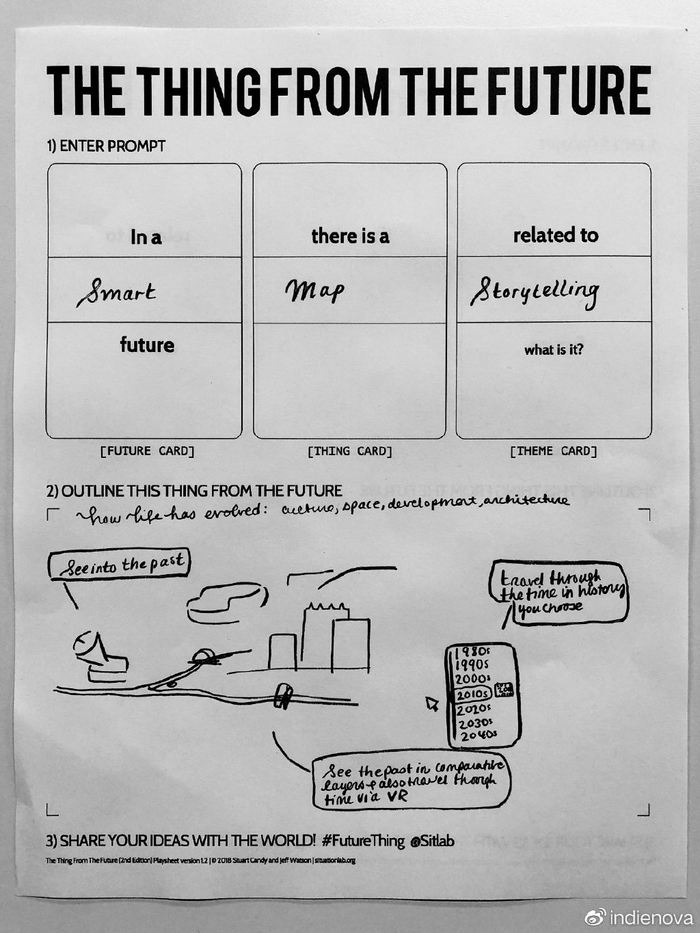 THE THING FROM THE FUTURE
1) ENTER PROMPT
In a
Smart
future
there is a
Map
related to
Storytelling
what is it?
[FUTURE CARD]
[THING CARD]
[THEME CARD]
2) OUTLINE THIS THING FROM THE FUTURE
how life has evolved: culture, space, development, architecture
See into the past
travel through
the time in history
you choose
1980s
1990s
2000s
2010s
2020s
2030s
2040s
See the past in comparative
layers & also travel through
time via VR
3) SHARE YOUR IDEAS WITH THE WORLD! #FutureThing @Sitlab
The Thing From The Future (2nd Edition) Playsheet version 1.2 | © 2018 Stuart Candy and Jeff Watson | situationlab.org
indienova